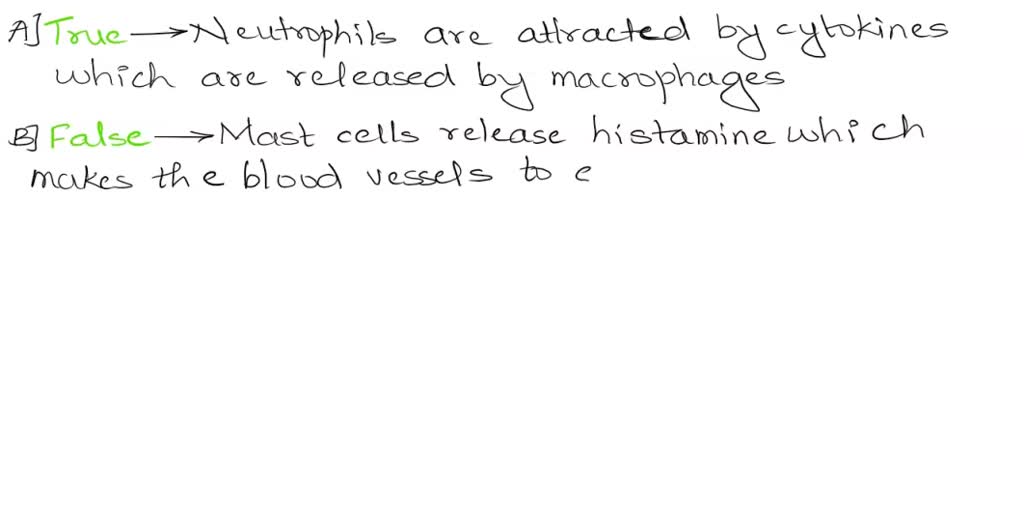 A] True → Neutrophils are attracted by cytokines
which are released by macrophages
B] False → Mast cells release histamine which
makes the blood vessels to e